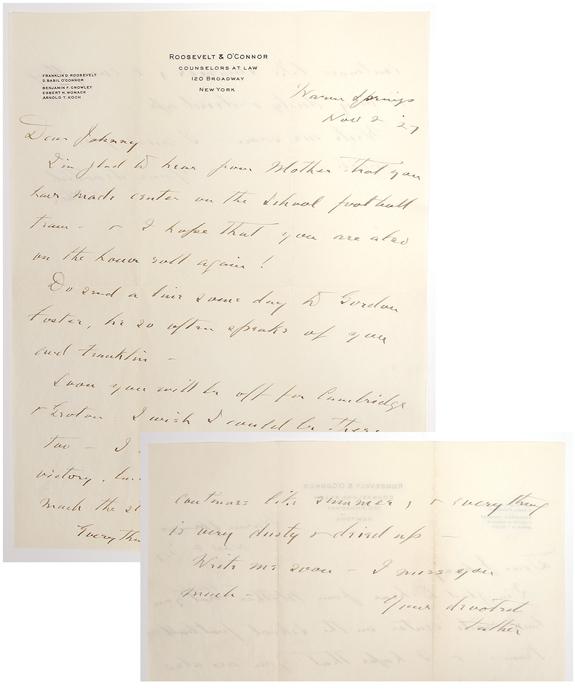 ROOSEVELT & O'CONNOR
COUNSELORS AT LAW
120 BROADWAY
NEW YORK
FRANKLIN D. ROOSEVELT
D. BASIL O'CONNOR
BENJAMIN F. CROWLEY
EGBERT H. WOMACK
ARNOLD T. KOCH
Warm Springs
Nov 2 '27
Dear Johnny
I'm glad to hear from Mother that you
have made center on the School football
team - & I hope that you are also
on the honor roll again!
Do send a line some day to Gordon
Foster, he so often speaks of you
and Franklin -
Soon you will be off for Cambridge
& Groton I wish I could be there
too - I
victory,
much the
Everythin
continues like summer, & everything
is very dusty & dried up -
Write me soon - I miss you
much -
Your devoted
Father